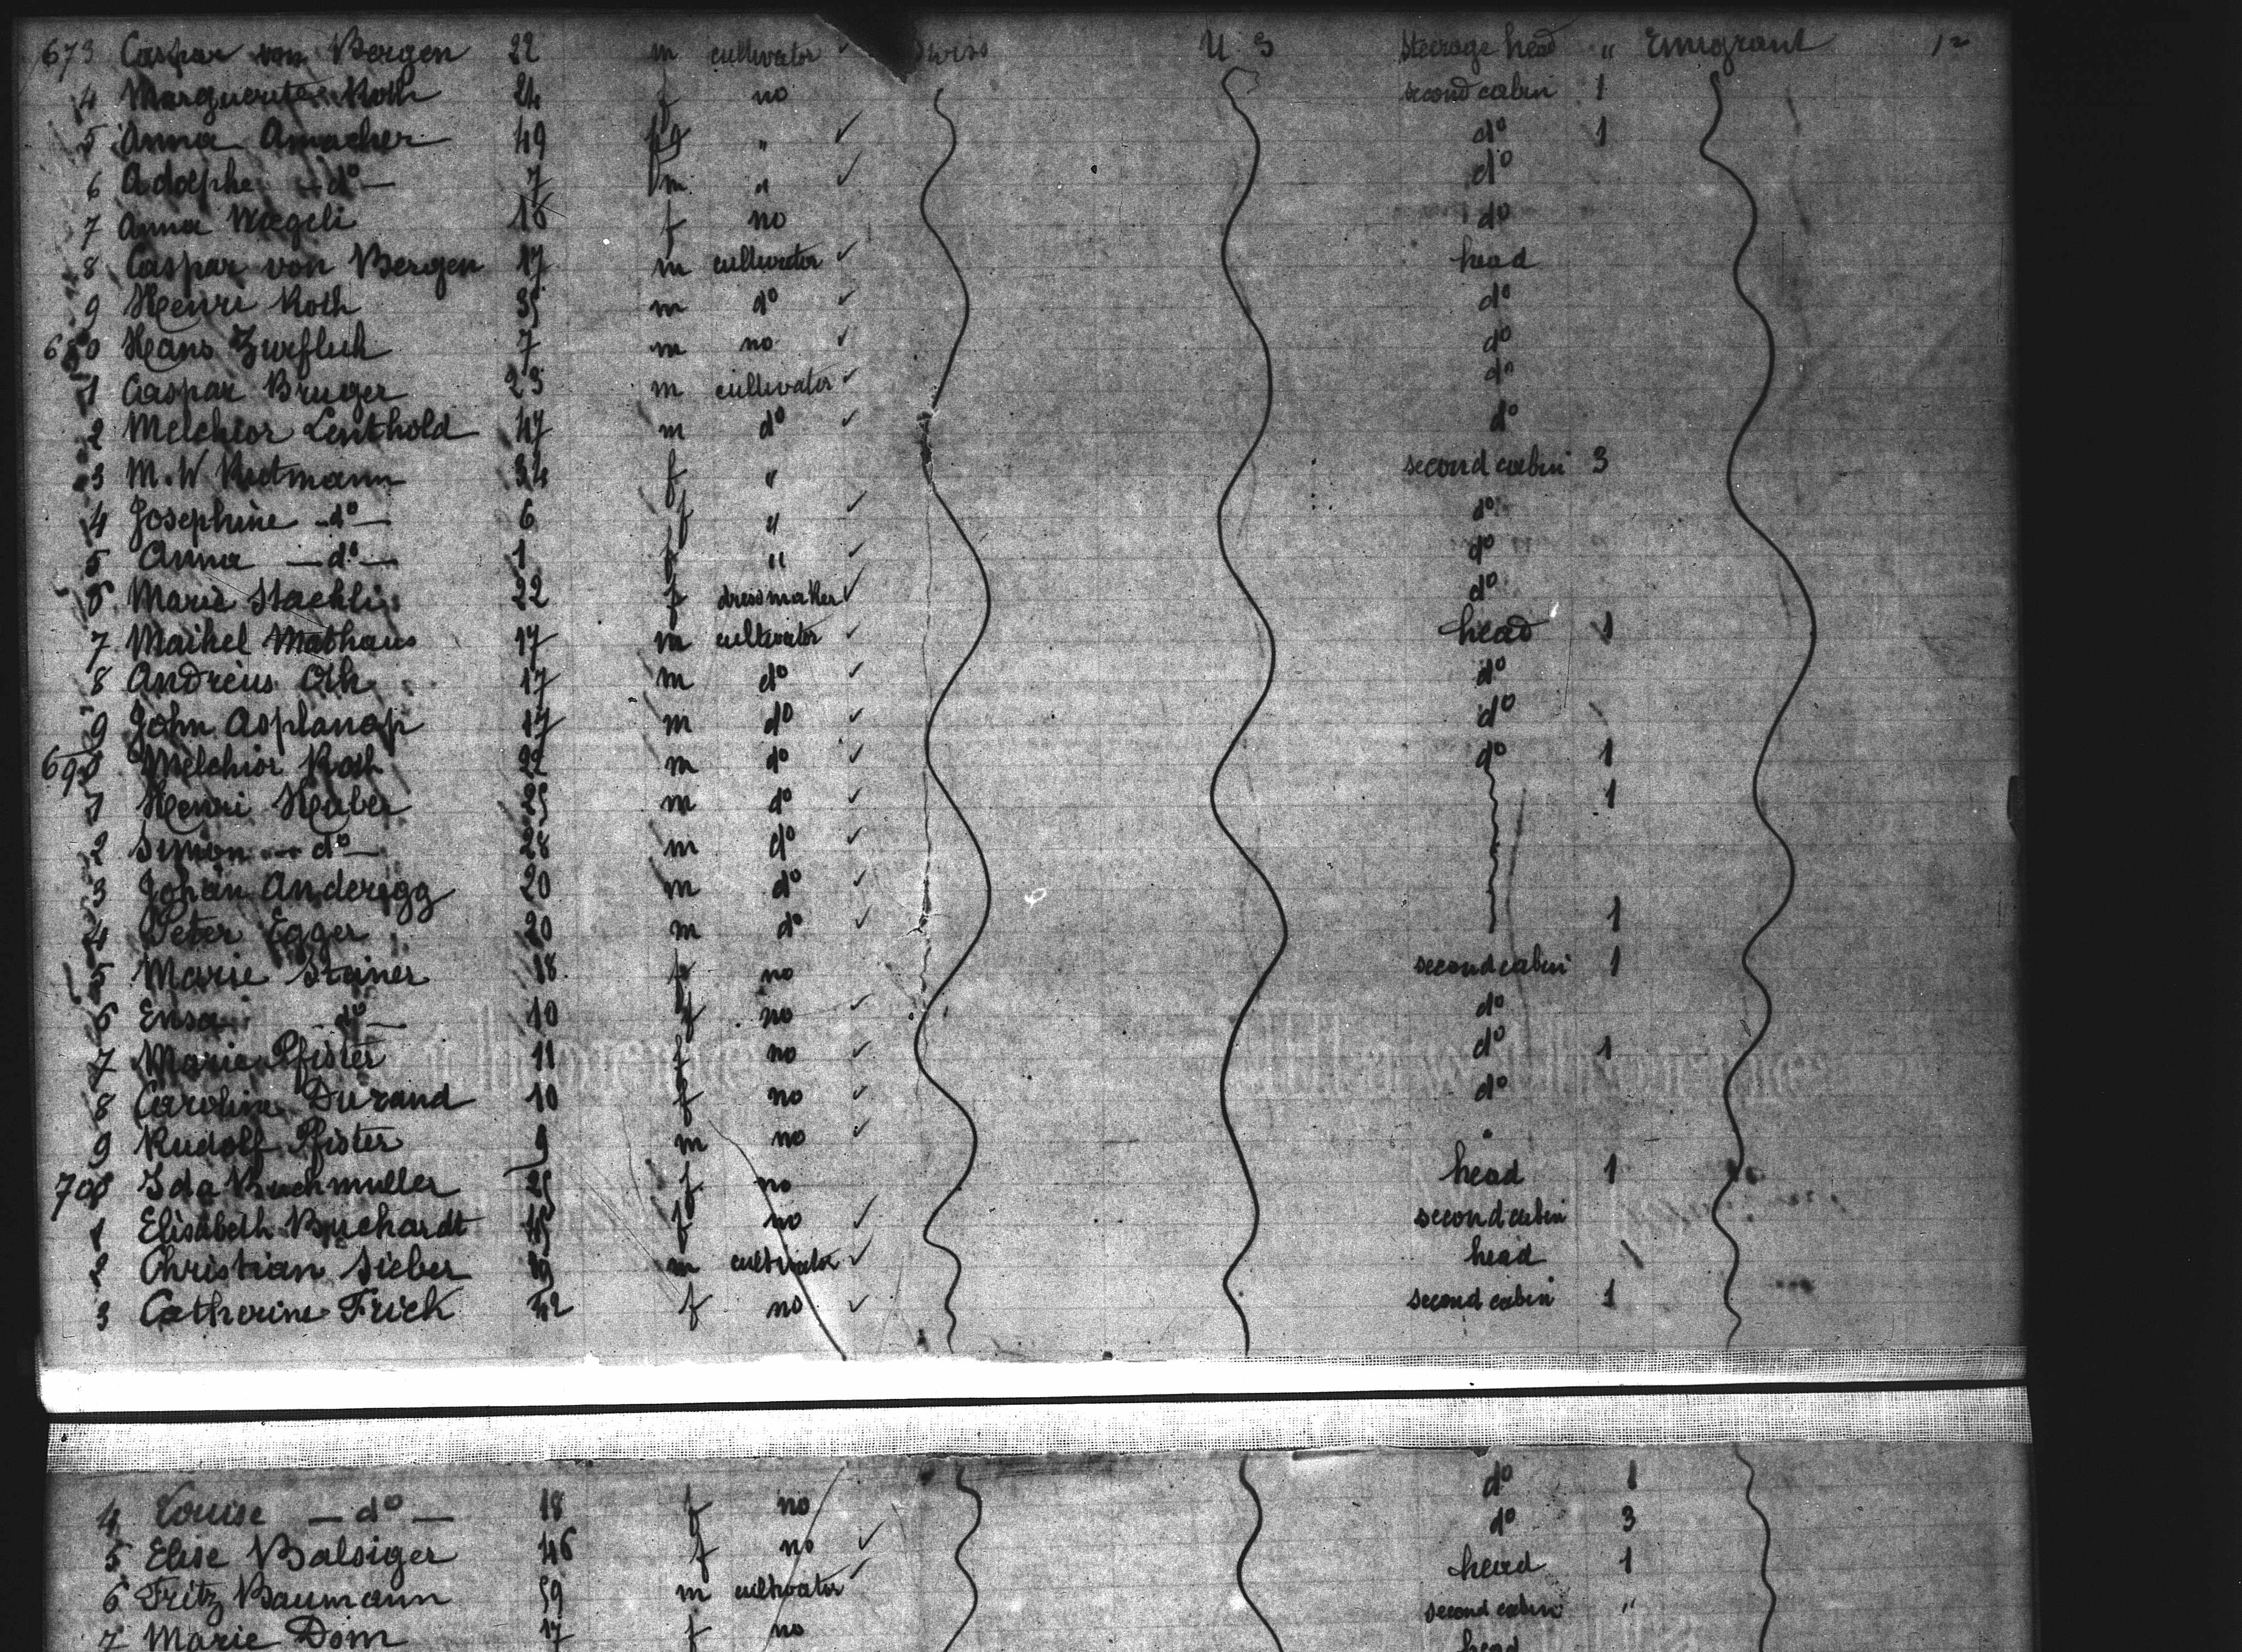 673 Caspar von Bergen 22 m cultivator ✓ Swiss U S Steerage head " Emigrant 12
4 Marguerite Roth 24 f no second cabin 1
5 Anna Amacher 49 f " ✓ do 1
6 Adolphe — do — 7 m " ✓ do
7 Anna Maegeli 16 f no do
8 Caspar von Bergen 17 m cultivator ✓ head
9 Henri Roth 35 m do ✓ do
680 Hans Zurfluh 7 m no ✓ do
1 Caspar Bruger 23 m cultivator ✓ do
2 Melchior Leuthold 47 m do ✓ do
3 M. W 34 f " second cabin 3
4 Josephine — do — 6 f " ✓ do
5 Anna — do — 1 f " ✓ do
6 Marie Staehli 22 f dressmaker ✓ do
7 Maikel Mathaus 17 m cultivator ✓ head 1
8 Andreus Oth 17 m do ✓ do
9 John Asplanap 17 m do ✓ do
690 Melchior Roth 22 m do ✓ do 1
1 Henri Heuber 25 m do ✓ 1
2 Simon — do — 28 m do ✓
3 Johan Anderegg 20 m do ✓
4 Peter Egger 20 m do ✓ 1
5 Marie Steiner 18 f no second cabin 1
6 — do — 10 f no ✓ do
7 Marie Pfister 11 f no ✓ do 1
8 Caroline Durand 10 f no ✓ do
9 Rudolf Pfister 9 m no ✓ "
700 Ida Buchmuller 25 f no head 1
1 Elisabeth Buchardt 45 f no ✓ second cabin
2 Christian Sieber m cultivator ✓ head
3 Catherine Frick 42 f no ✓ second cabin 1
4 Louise — do — 18 f no do 1
5 Elise Balsiger 46 f no ✓ do 3
6 Fritz Baumann 59 m cultivator ✓ head 1
7 Marie Dom 17 f no second cabin "
head